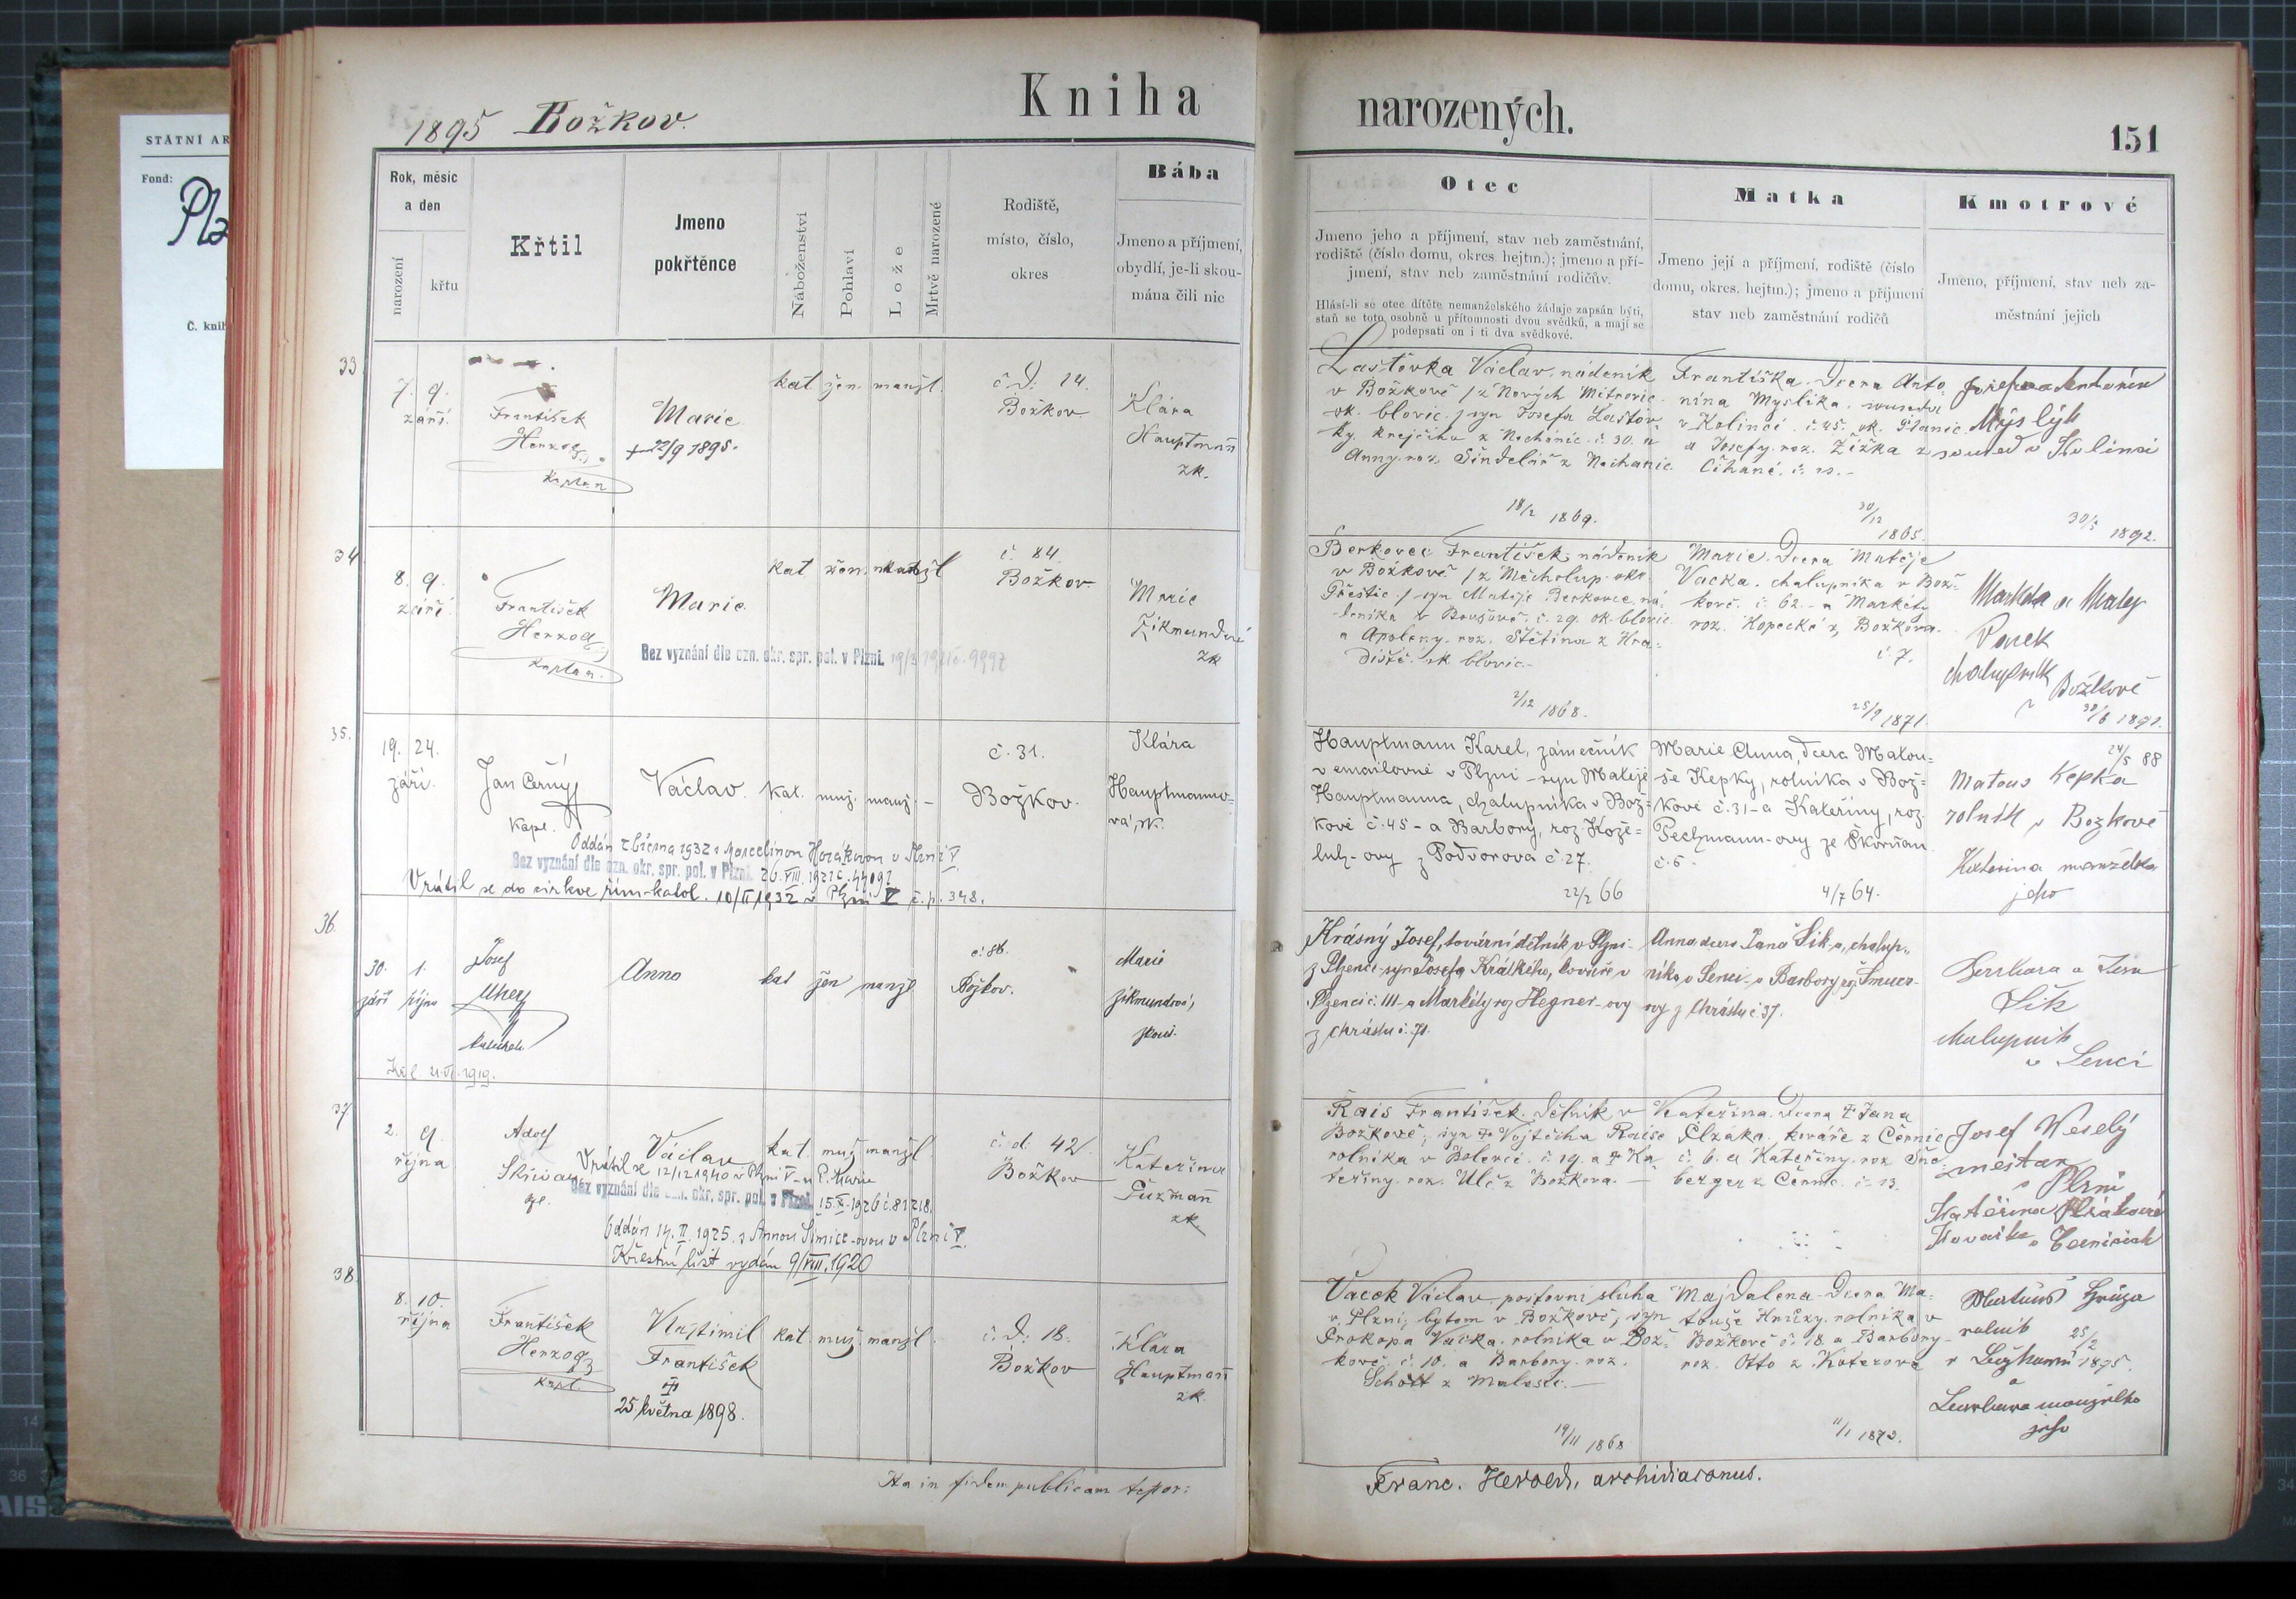 STÁTNÍ AR
Fond:
Pla
Č. knih
1895 Božkov.
Kniha
narozených.
151
Rok, měsíc
a den
narození
křtu
Křtil
Jmeno
pokřtěnce
Náboženství
Pohlaví
Lože
Mrtvě narozené
Rodiště,
místo, číslo,
okres
Bába
Jmeno a příjmení,
obydlí, je-li skou-
mána čili nic
Otec
Jmeno jeho a příjmení, stav neb zaměstnání,
rodiště (číslo domu, okres. hejtm.); jmeno a pří-
jmení, stav neb zaměstnání rodičův.
Hlásí-li se otec dítěte nemanželského žádaje zapsán býti,
staň se toto osobně u přítomnosti dvou svědků, a mají se
podepsati on i ti dva svědkové.
Matka
Jmeno její a příjmení, rodiště (číslo
domu, okres. hejtm.); jmeno a příjmení
stav neb zaměstnání rodičů
Kmotrové
Jmeno, příjmení, stav neb za-
městnání jejich
33
7. 9.
září.
František
Herzog,
kaplan
Marie
+ 22/9 1895.
kat žen. manžl.
č. d. 14.
Božkov
Klára
Hauptmann
zk.
Lastovka Václav, nádeník
v Božkově / z Nových Mitrovic
ok. blovic. / syn Josefa Lastov-
ky, krejčího z Nechanic č. 30. a
Anny roz. Šindelář z Nechanic
18/2 1869.
Františka. Dcera Anto-
nína Myslíka. souseda
v Kolinci. č. 45. ok. Planic.
a Josefy. roz. Žižka z
Číhaně. č.
30/12 1865.
Josefa a Antonín
Myslík
soused v Kolinci
30/5 1892.
34
8. 9.
září.
František
Herzog,
kaplan.
Marie.
Bez vyznání dle ozn. okr. spr. pol. v Plzni.
kat žen. manžl
č. 84.
Božkov
Marie
Zikmundová
zk
Berkovec František, nádeník
v Božkově / z Měcholup okr.
Přeštic / syn Matěje Berkovce, ná-
deníka v č. 29. ok. blovic
a Apoleny. roz. Štětina z Hra-
diště. ok blovic.-
2/12 1868.
Marie. Dcera Matěje
Vacka. chalupníka v Bož-
kově. č. 62. - a Markéty
roz. Kopecké z Božkova.
č. 7.
25/9 1871.
Markéta a Matěj
chalupník
v Božkově
1891.
35.
19. 24.
září.
Jan Černý
kapl.
Václav.
kat. muž. manž. -
č. 31.
Božkov.
Klára
Hauptmanno-
vá, zk.
Oddán z března 1932 s Marcelinou Horákovou v Plzni V.
Bez vyznání dle ozn. okr. spr. pol. v Plzni. 26. VIII. 1921
Vrátil se do církve řím-katol. 10/II 1932 v Plzni V č. p. 348.
Hauptmann Karel, zámečník
v emailovně v Plzni - syn Matěje
Hauptmanna, chalupníka v Bož-
kově č. 45 - a Barbory, roz. Kože-
luh-ovy z Podvorova č. 27.
22/2 66
Marie Anna, dcera Matou-
še Kepky, rolníka v Bož-
kově č. 31 - a Kateřiny, roz.
Pechmann-ovy ze Škvrňan
č. 6.
4/7 64.
24/5 88
Matous Kepka
rolník v Bozkově
Katerina manželka
jeho
36.
30. 1.
září října
Josef
Uher
Anna
kat žen manžl
č. 86.
Božkov.
Marie
Zikmundová,
zkouš.
1919.
Krásný Josef, tovární dělník v Plzni
z Plzence syn Josefa Krátkého, kováře v
Plzenci č. III - a Markéty roz Hegner-ovy
z Chrástu č. 71.
Anna dcera Jana Šika, chalup-
níka v Senci - a Barbory roz.
ovy z Chrástu č. 37.
Barbara a Jan
Šik
chalupník
v Senci
37
2. 9.
října
Adolf
Václav
Vrátil se 12/12 1940 v Plzni V - u P. Marie
Bez vyznání dle ozn. okr. spr. pol. v Plzni. 15. X. 1926 č. 81218.
Oddán 14. II. 1925. s Annou v Plzni V.
Křestní list vydán 9/VIII. 1920
kat. muž manžl
č. d. 42
Božkov
Kateřina
zk.
Rais František. Dělník v
Božkově, syn + Vojtěcha Raise
rolníka v Bolevci. č. 19. a + Ka-
teřiny. roz. Ulč z Božkova. -
Kateřina. Dcera + Jana
Plzáka. kováře z Černic
č. 6. a Kateřiny. roz
berger z Černic. č. 13.
Josef Weselý
mestar
v Plzni
Kateřina Plzáková
Kovařka v Černicich
38.
8. 10.
října
František
Herzog
kapl.
Vlastimil
František
+
25. května 1898.
kat. muž. manžl.
č. d. 18.
Božkov
Klára
Hauptmann
zk.
Vacek Václav, poštovní sluha
v Plzni, bytem v Božkově, syn
Prokopa Vacka. rolníka v Bož-
kově. č. 10. a Barbory. roz.
Schott z Malesic. -
19/11 1868
Majdalena - Dcera Ma-
touše Hrůzy. rolníka v
Božkově č. 18. a Barbory
roz. Otto z Koterova
11/1 1873.
Matouš Hrůza
rolník
v Božkově
25/2 1895.
a
Barbora manželka
jeho
Ita in fidem publicam testor:
Franc. Herold, archidiaconus.